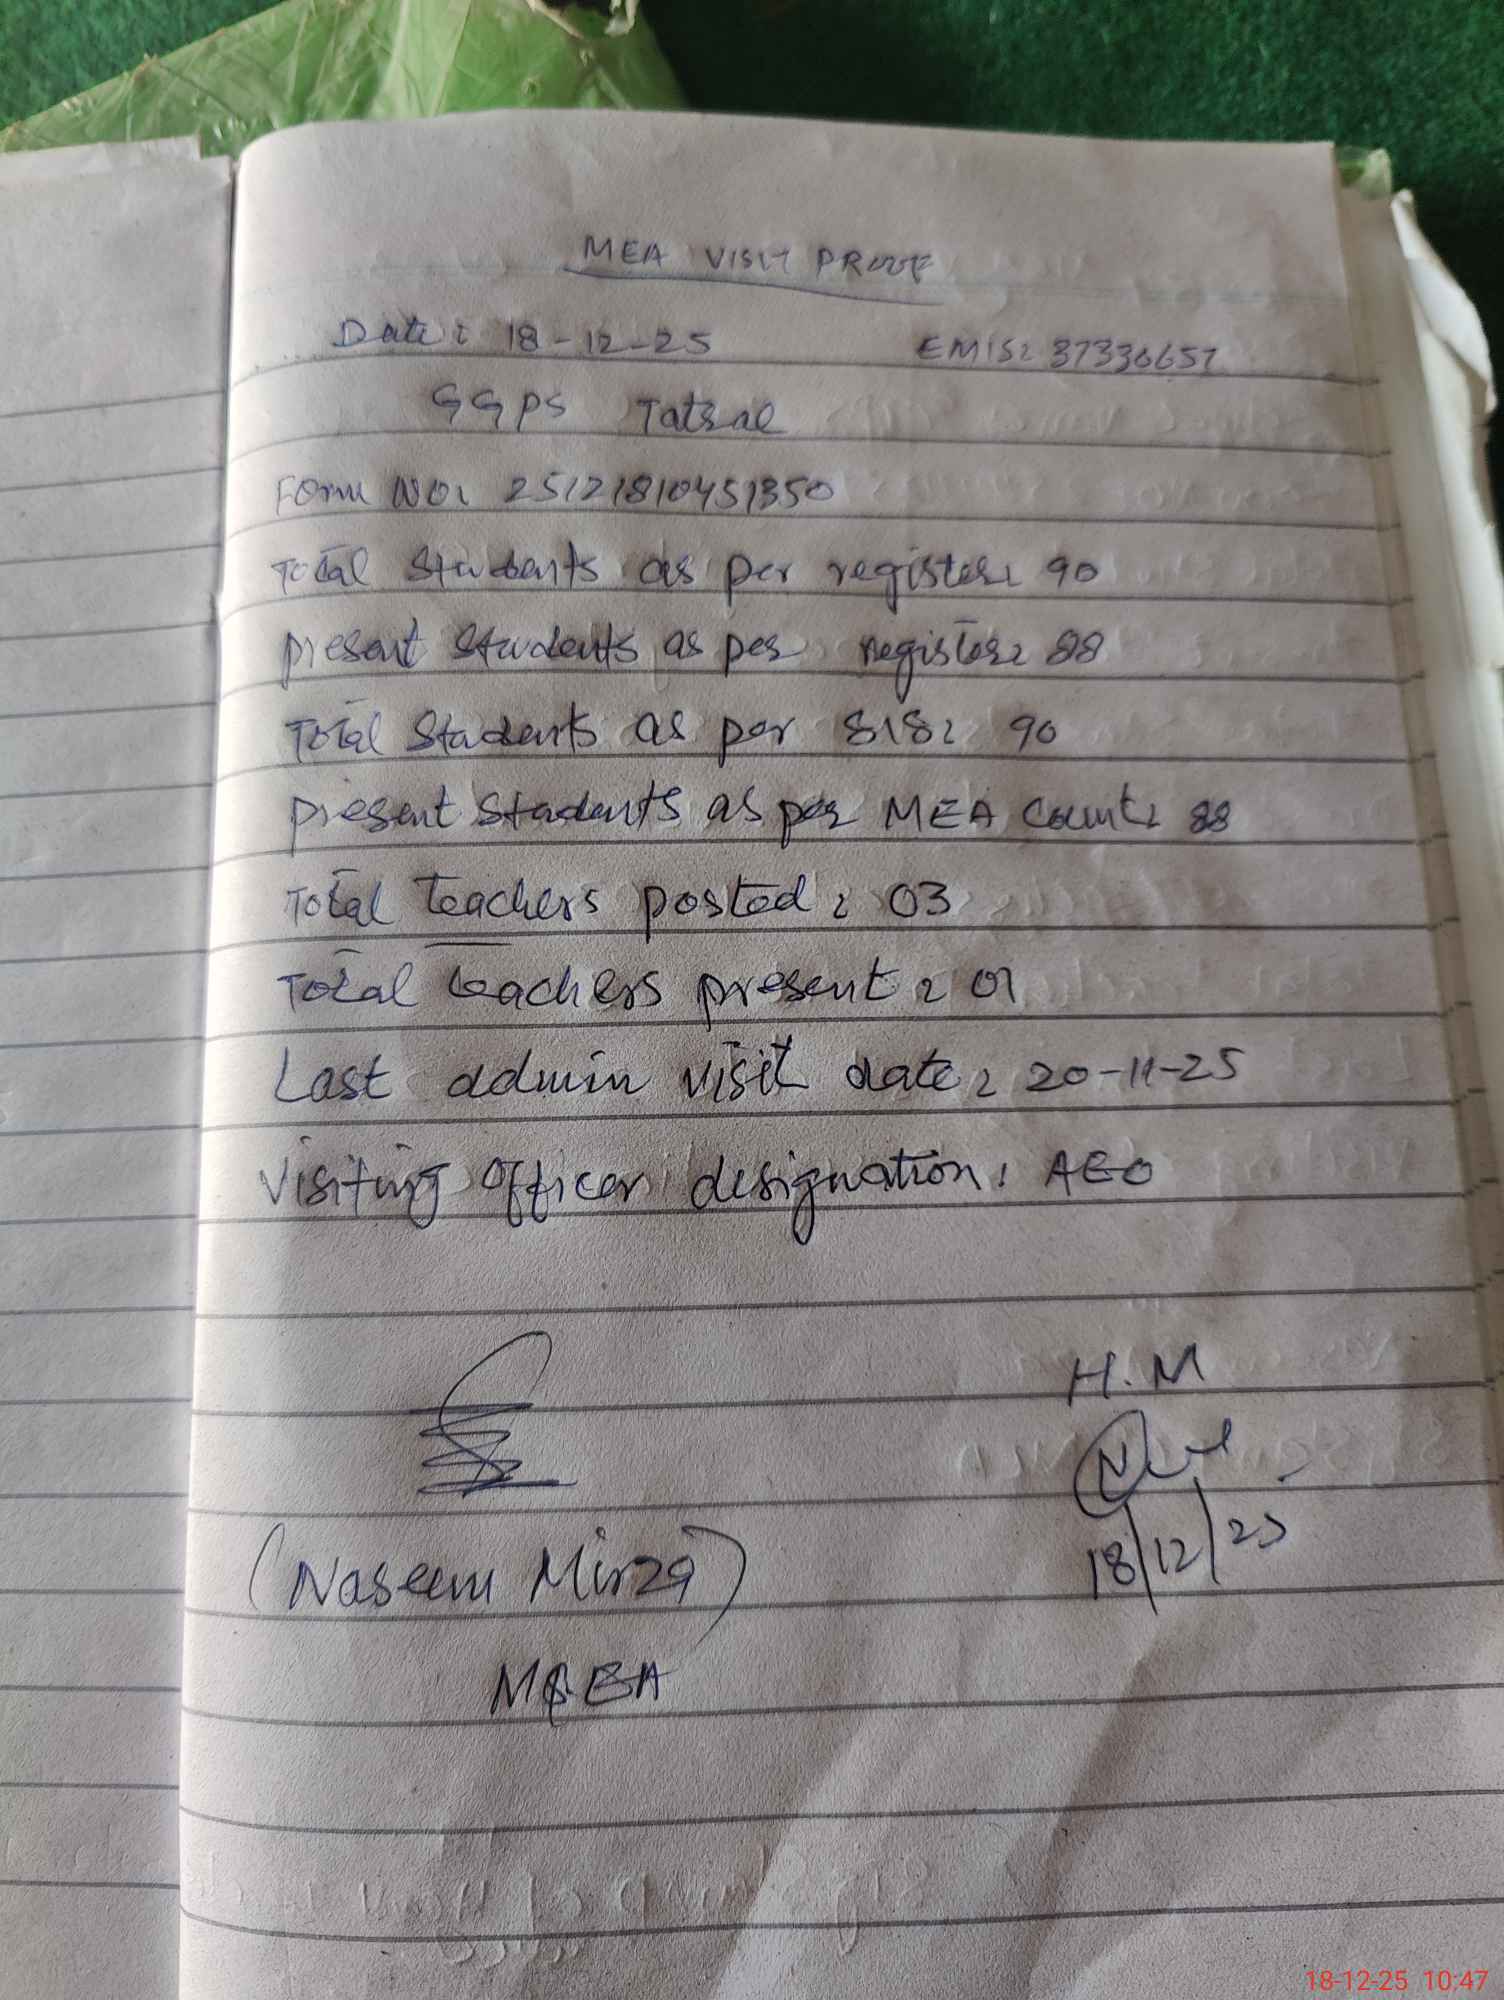 MEA VISIT PROOF
Date: 18-12-25 EMIS: 37330657
GGPS Tatral
Form No: 25121810451350
Total Students as per register: 90
present Students as per register: 88
Total Students as per SIS: 90
present Students as per MEA Count: 88
Total Teachers posted: 03
Total teachers present: 01
Last admin visit date: 20-11-25
Visiting Officer designation: AEO
H.M
18/12/25
(Naseem Mirza)
MEA
18-12-25 10:47